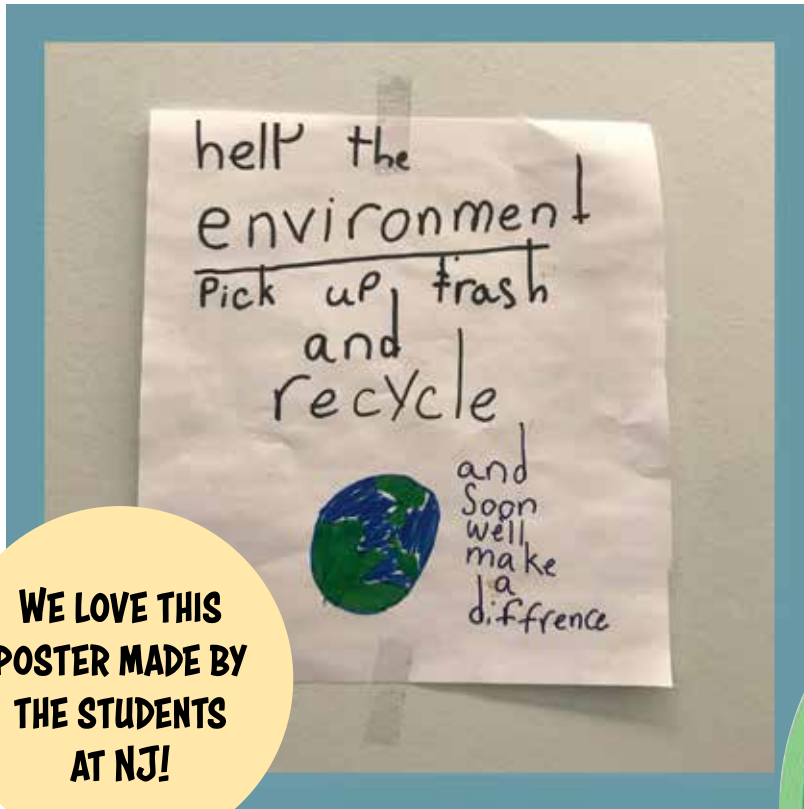 help the
environment
Pick up trash
and
recycle
and
Soon
well
make
a
diffrence
WE LOVE THIS
POSTER MADE BY
THE STUDENTS
AT NJ!